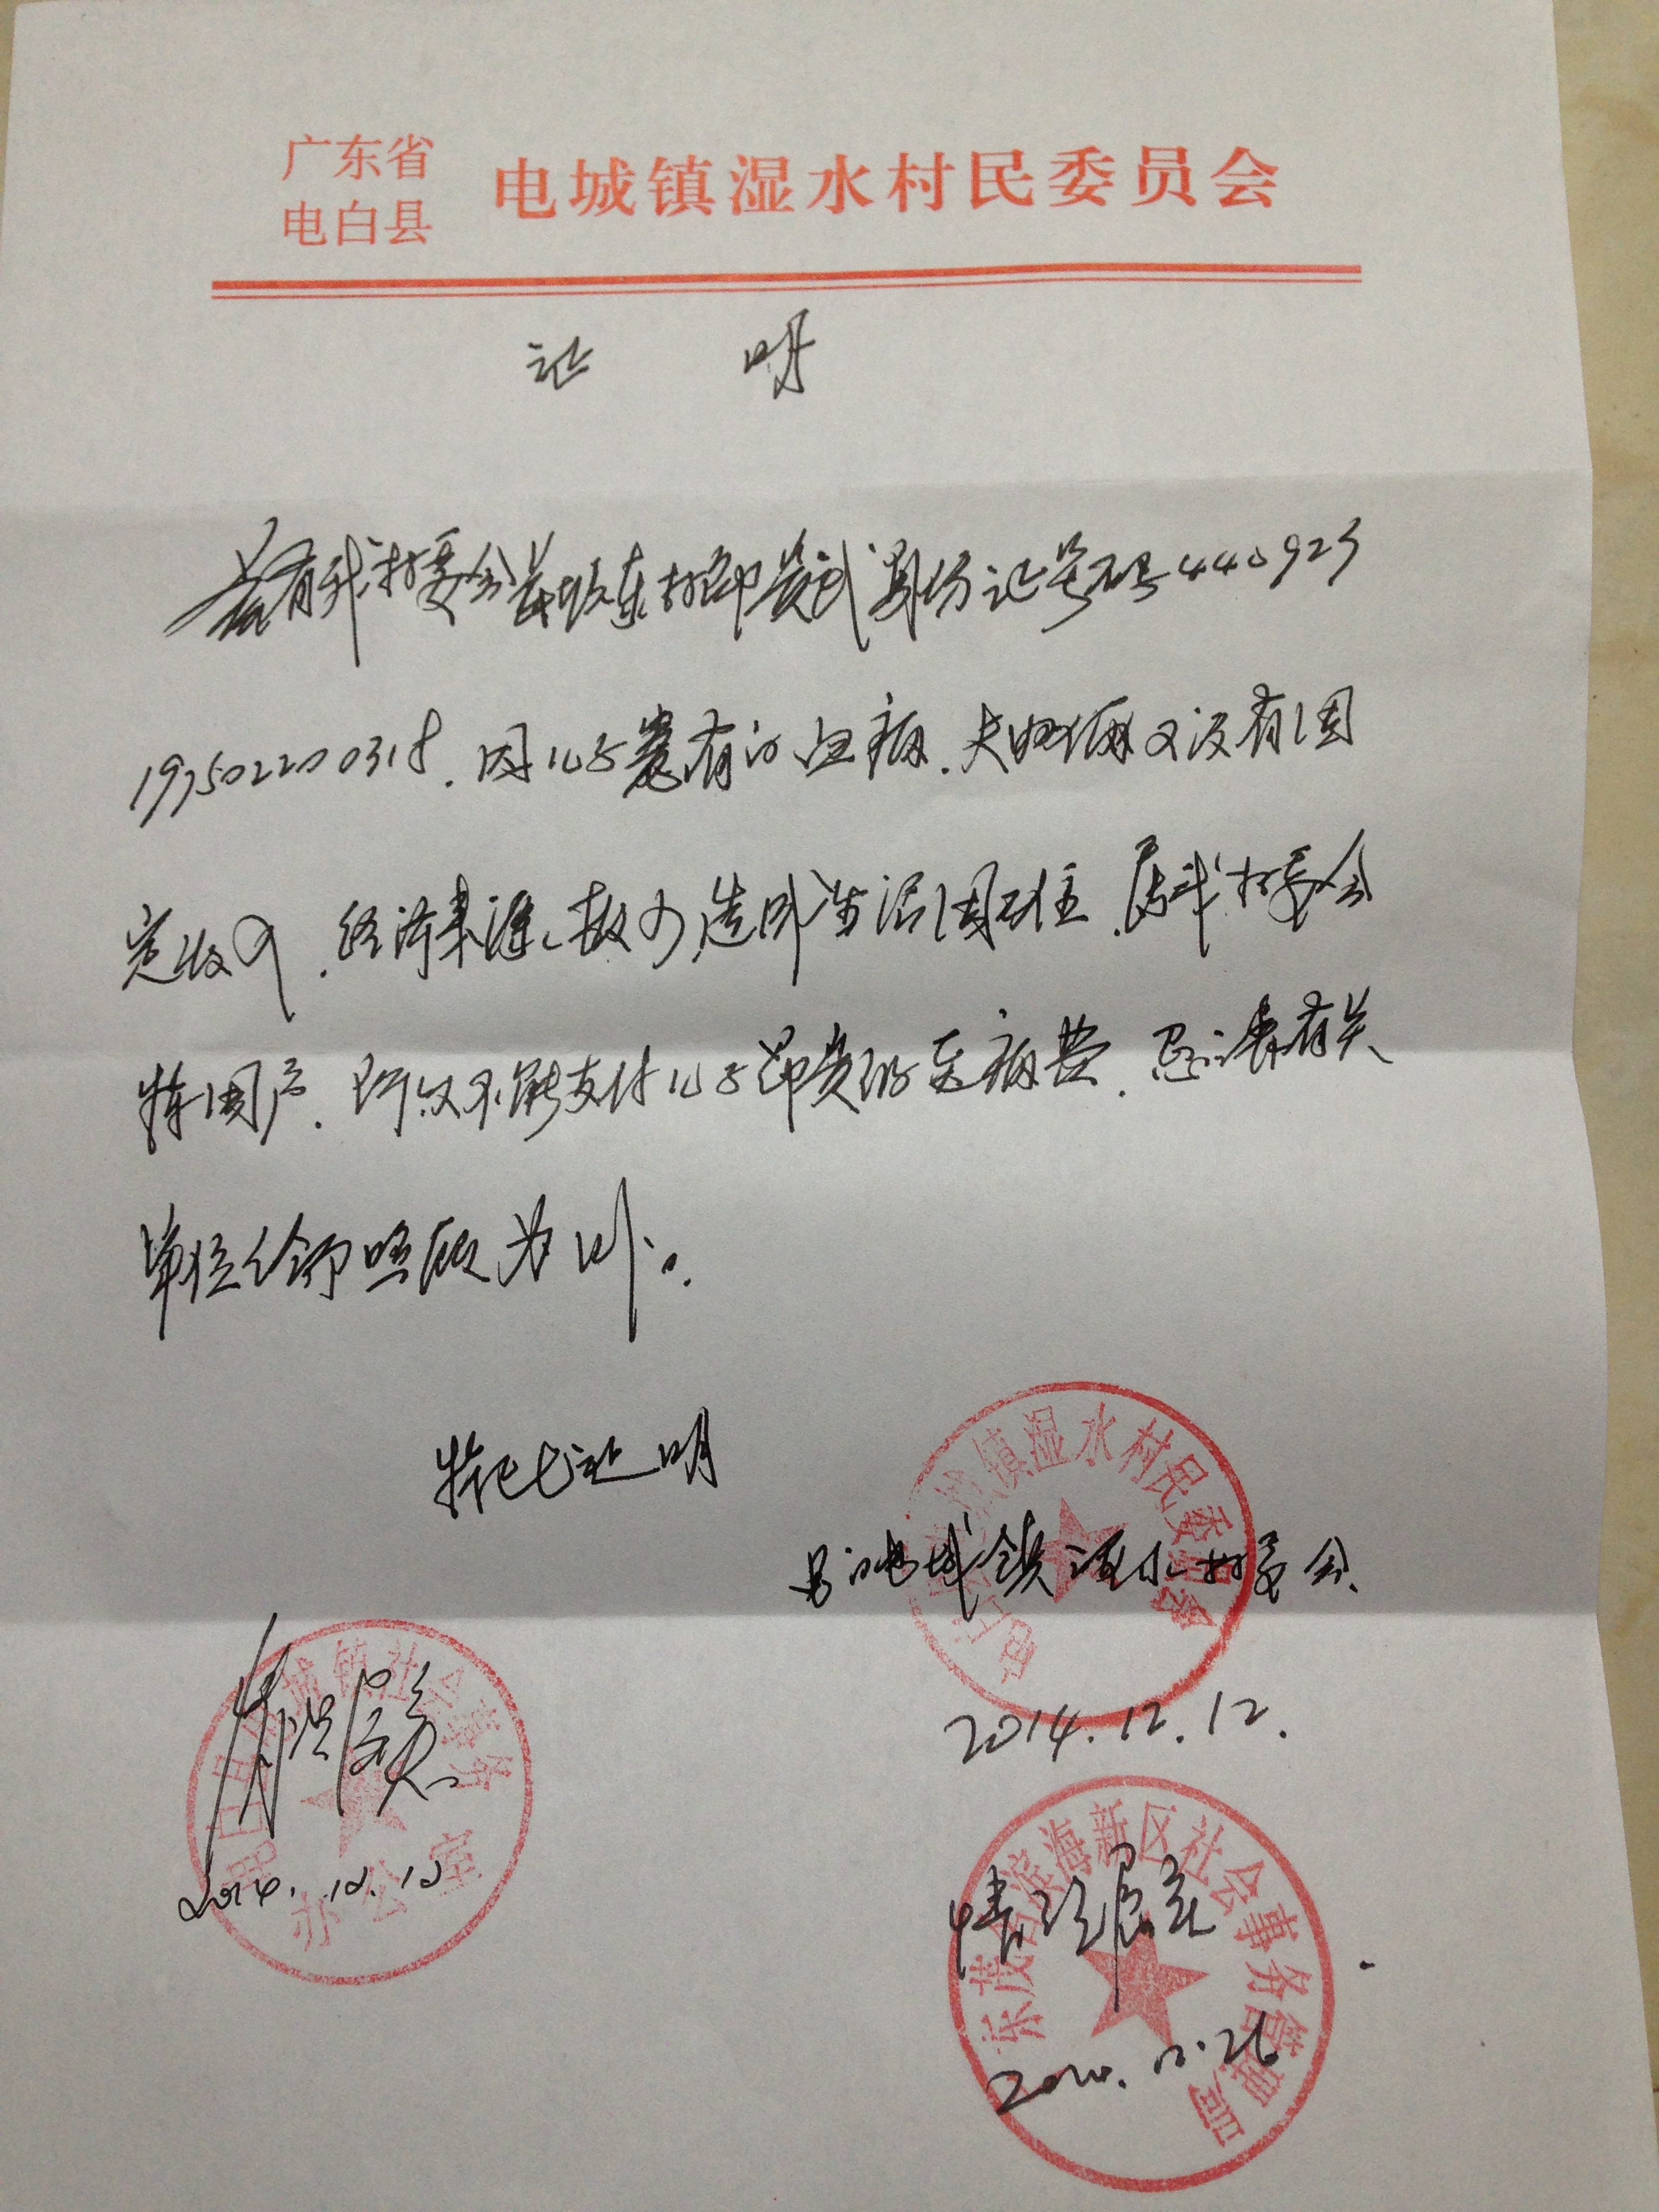 广东省
电白县
电城镇湿水村民委员会
证 明
兹有我村委会 东村邵贵武身份证号码440923
197502200318.因儿子患有白血病.夫妇俩又没有固
定收入.经济来源缺少,造成生活困难.属我村委会
特困户.所以不能支付儿子邵贵 医病费.恳请有关
单位给予照顾为盼。
特此证明
电城镇湿水村委会
镇湿水村民委
2014.12.12.
城镇社会事务
办公室
2014.12.12
滨海新区社会事务管理局
12.26